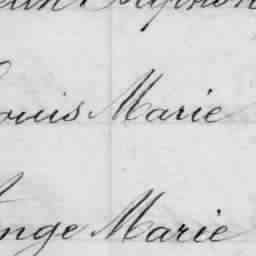 Louis Marie
Ange Marie